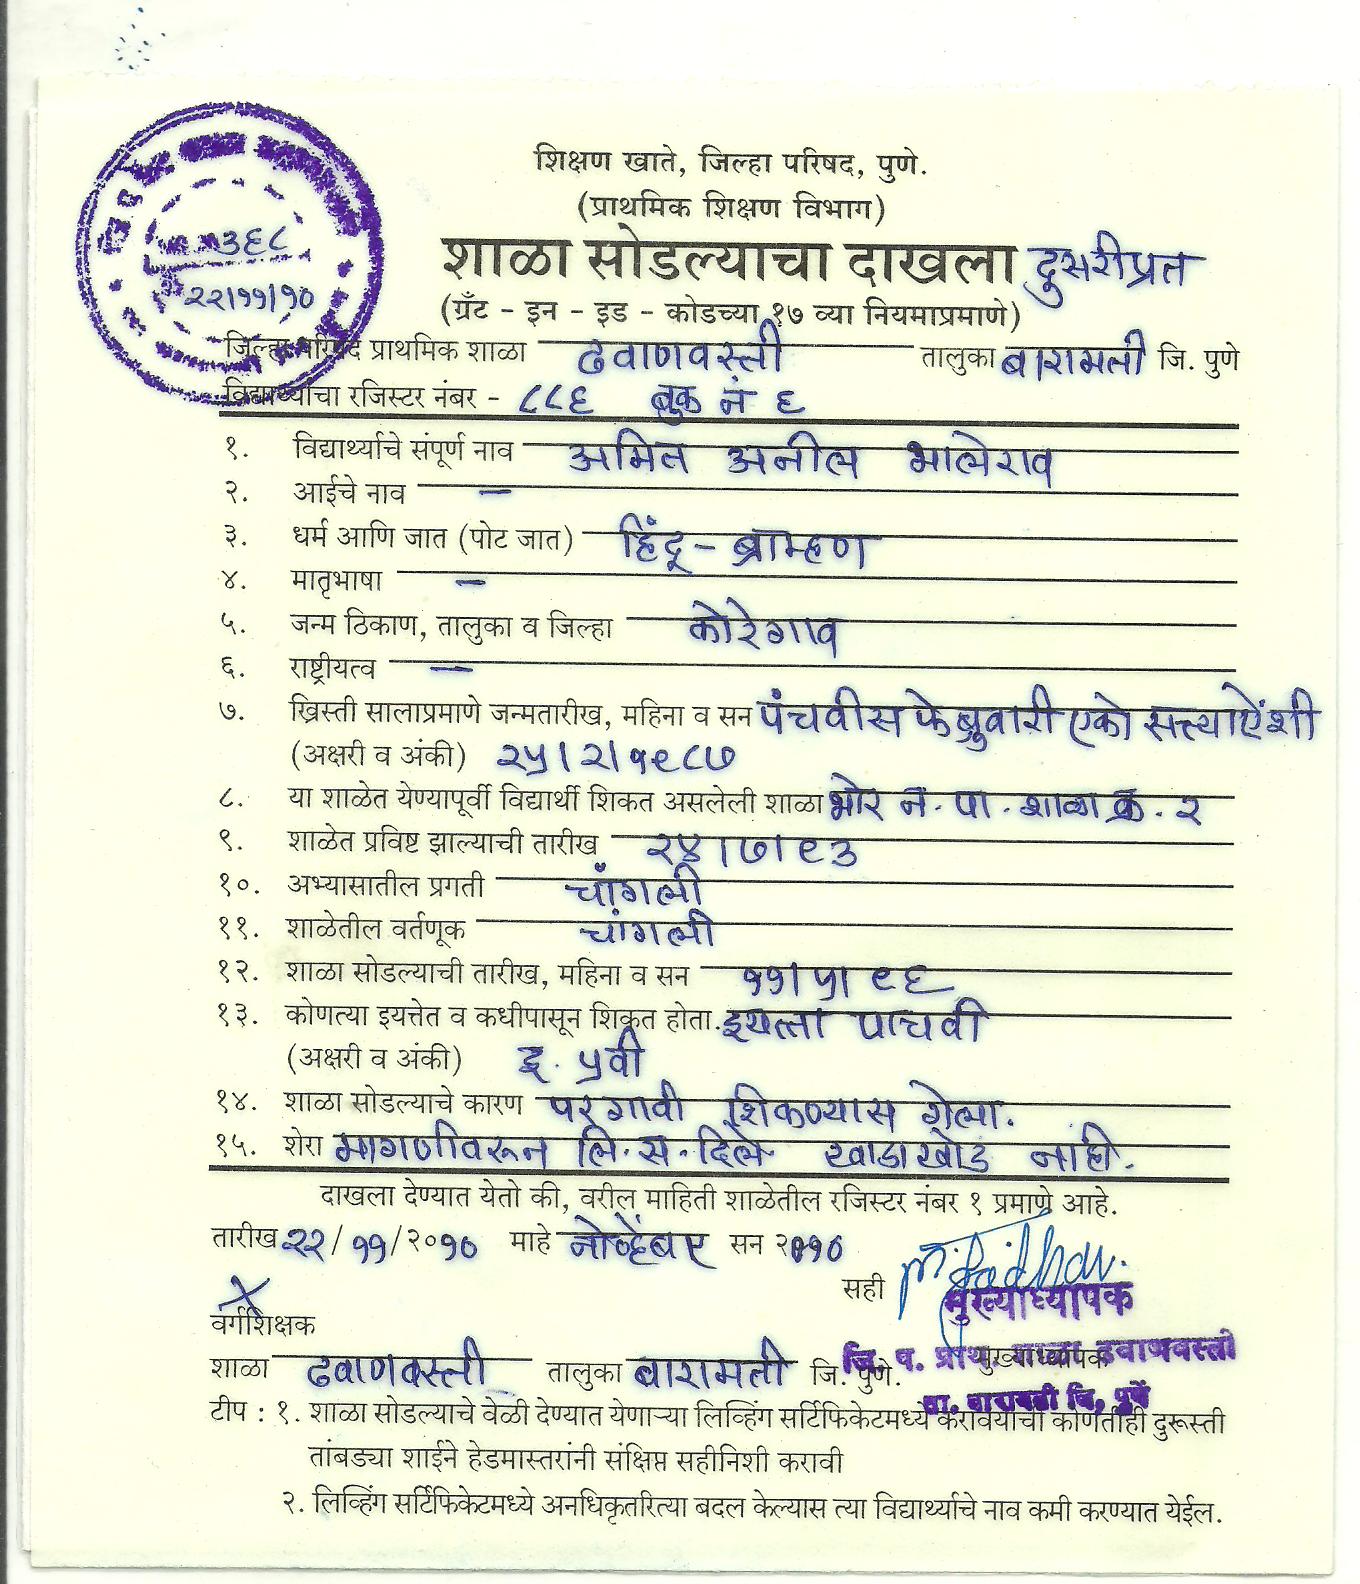 शिक्षण खाते, जिल्हा परिषद, पुणे.
(प्राथमिक शिक्षण विभाग)
शाळा सोडल्याचा दाखला दुसरीप्रत
(ग्रँट - इन - इड - कोडच्या १७ व्या नियमाप्रमाणे)
३६८
२२/११/१०
जिल्हा परिषद प्राथमिक शाळा ढवाणवस्ती तालुका बारामती जि. पुणे
विद्यार्थ्याचा रजिस्टर नंबर - ८८६ बुक नं ६
१. विद्यार्थ्याचे संपूर्ण नाव अमित अनील भालेराव
२. आईचे नाव —
३. धर्म आणि जात (पोट जात) हिंदू - ब्राम्हण
४. मातृभाषा —
५. जन्म ठिकाण, तालुका व जिल्हा कोरेगाव
६. राष्ट्रीयत्व —
७. ख्रिस्ती सालाप्रमाणे जन्मतारीख, महिना व सन पंचवीस फेब्रुवारी एको सत्त्याऐंशी
(अक्षरी व अंकी) २५/२/१९८७
८. या शाळेत येण्यापूर्वी विद्यार्थी शिकत असलेली शाळा भोर न. पा. शाळा क्र. २
९. शाळेत प्रविष्ट झाल्याची तारीख २४/७/९३
१०. अभ्यासातील प्रगती चांगली
११. शाळेतील वर्तणूक चांगली
१२. शाळा सोडल्याची तारीख, महिना व सन ११/५/९६
१३. कोणत्या इयत्तेत व कधीपासून शिकत होता. इयत्ता पाचवी
(अक्षरी व अंकी) इ. ५वी
१४. शाळा सोडल्याचे कारण परगावी शिकण्यास गेला.
१५. शेरा मागणीवरून लि. स. दिले खाडाखोड नाही.
दाखला देण्यात येतो की, वरील माहिती शाळेतील रजिस्टर नंबर १ प्रमाणे आहे.
तारीख २२/११/२०१० माहे नोव्हेंबर सन २०१०
सही
मुख्याध्यापक
वर्गशिक्षक
जि. प. प्राथ. शाळा ढवाणवस्ती
मुख्याध्यापक
शाळा ढवाणवस्ती तालुका बारामती जि. पुणे.
ता. बारामती जि. पुणे
टीप : १. शाळा सोडल्याचे वेळी देण्यात येणाऱ्या लिव्हिंग सर्टिफिकेटमध्ये करावयाची कोणतीही दुरूस्ती
तांबड्या शाईने हेडमास्तरांनी संक्षिप्त सहीनिशी करावी
२. लिव्हिंग सर्टिफिकेटमध्ये अनधिकृतरित्या बदल केल्यास त्या विद्यार्थ्याचे नाव कमी करण्यात येईल.